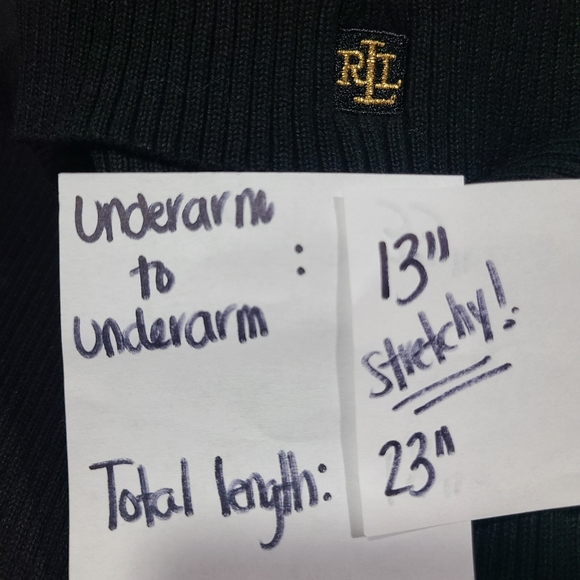 RLL
Underarm
to : 13"
underarm
stretchy!
Total length: 23"